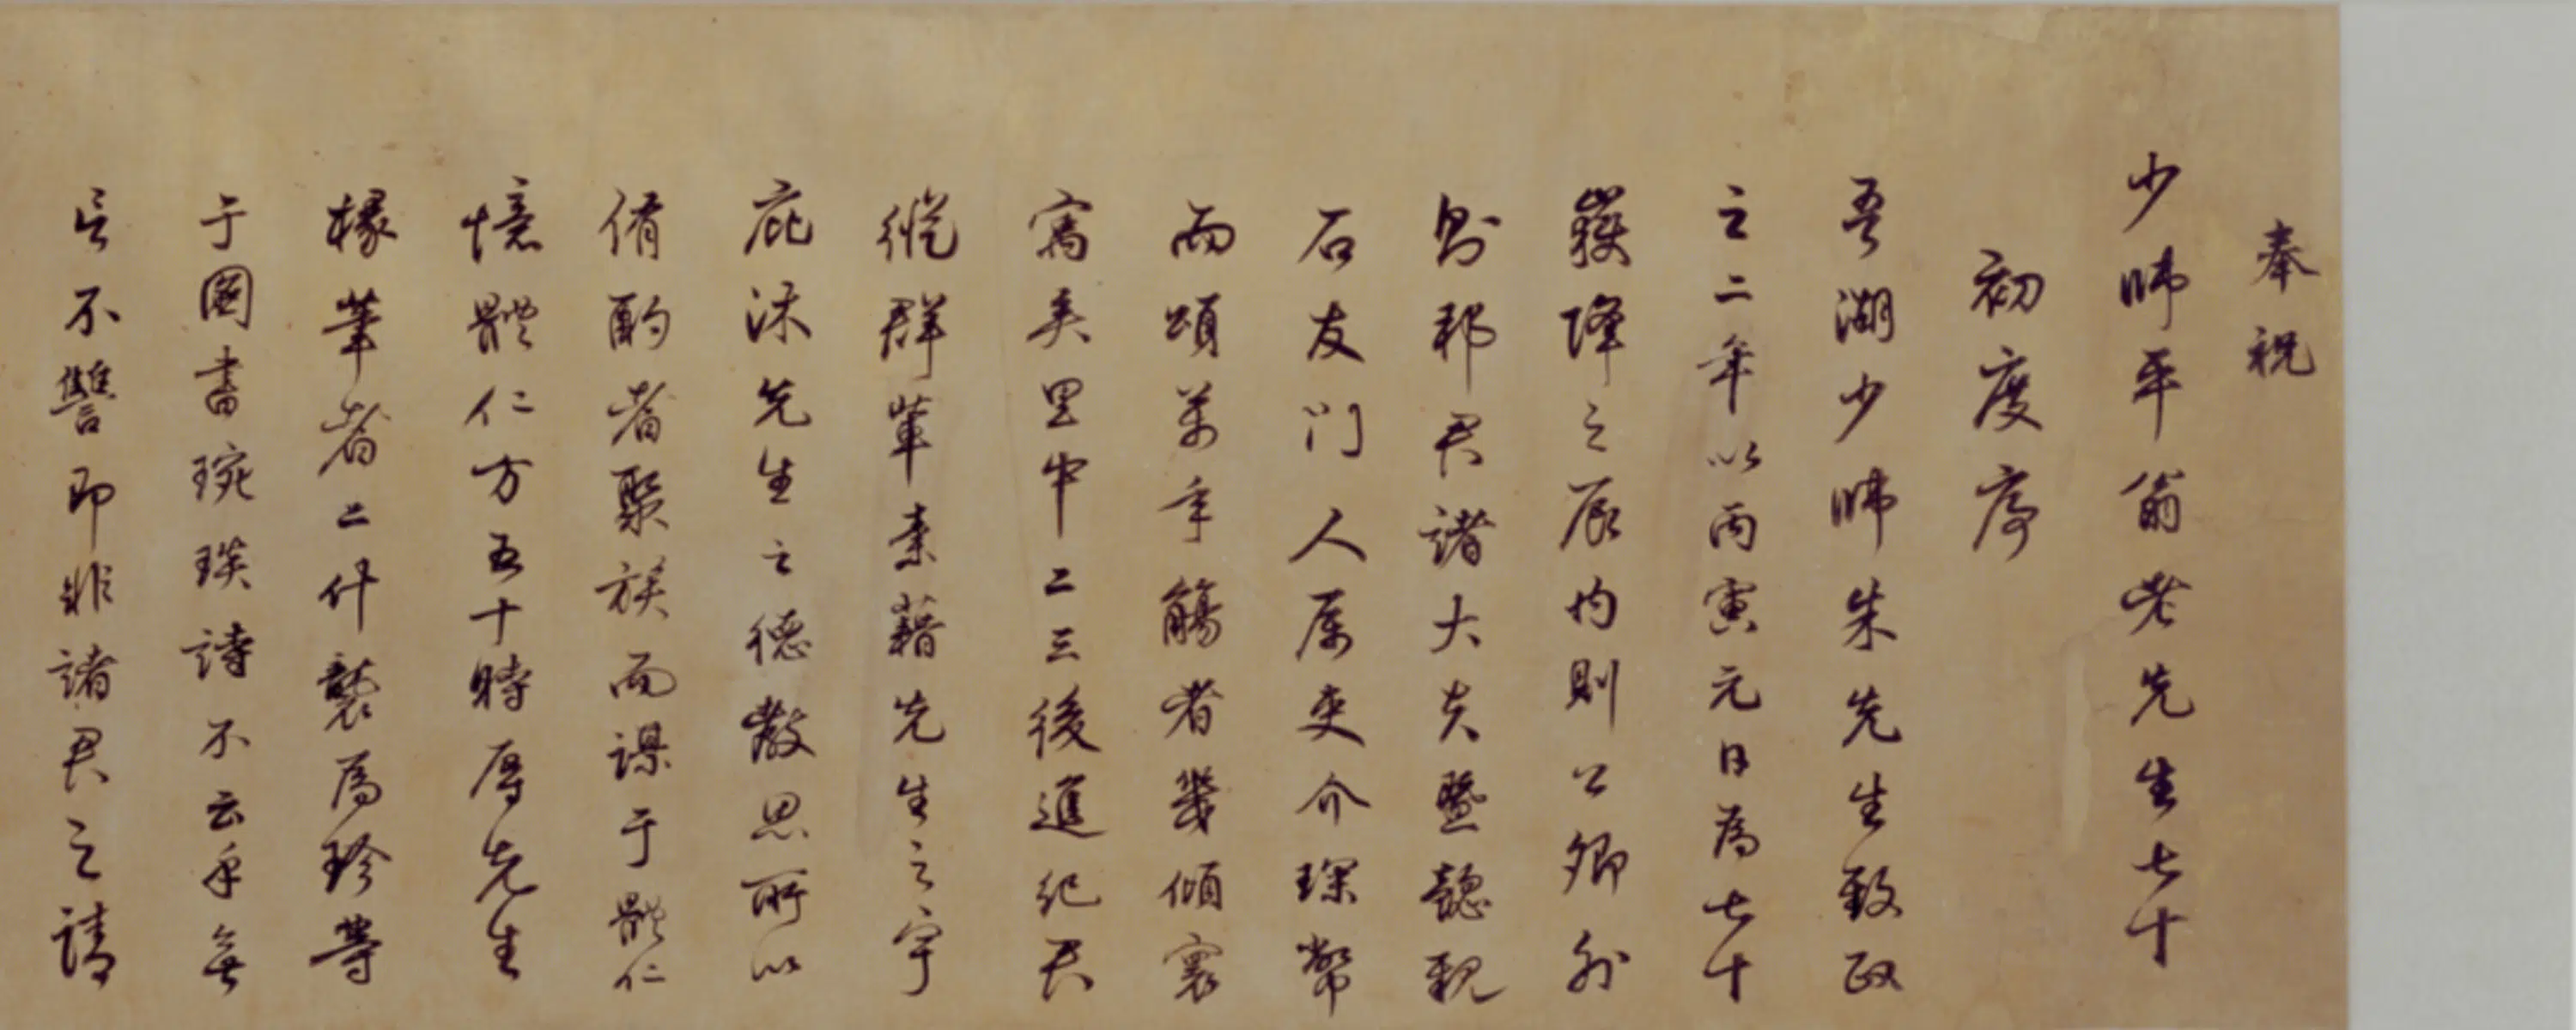 奉祝
少師平翁老先生七十
初度序
吾湖少師朱先生致政
之二年以丙寅元日為七十
嶽降之辰內則公卿外
則邦君諸大夫暨懿親
石友門人屬吏介琛幣
而頌萬年觴者幾傾寰
寓矣里中二三後進紀君
從群輩素藉先生之宇
庇沐先生之德教思所以
侑酌者聚族而謀于體仁
憶體仁方五十時辱先生
椽筆者二什襲為珍等
于圖書琬琰詩不云乎無
言不讐即非諸君之請